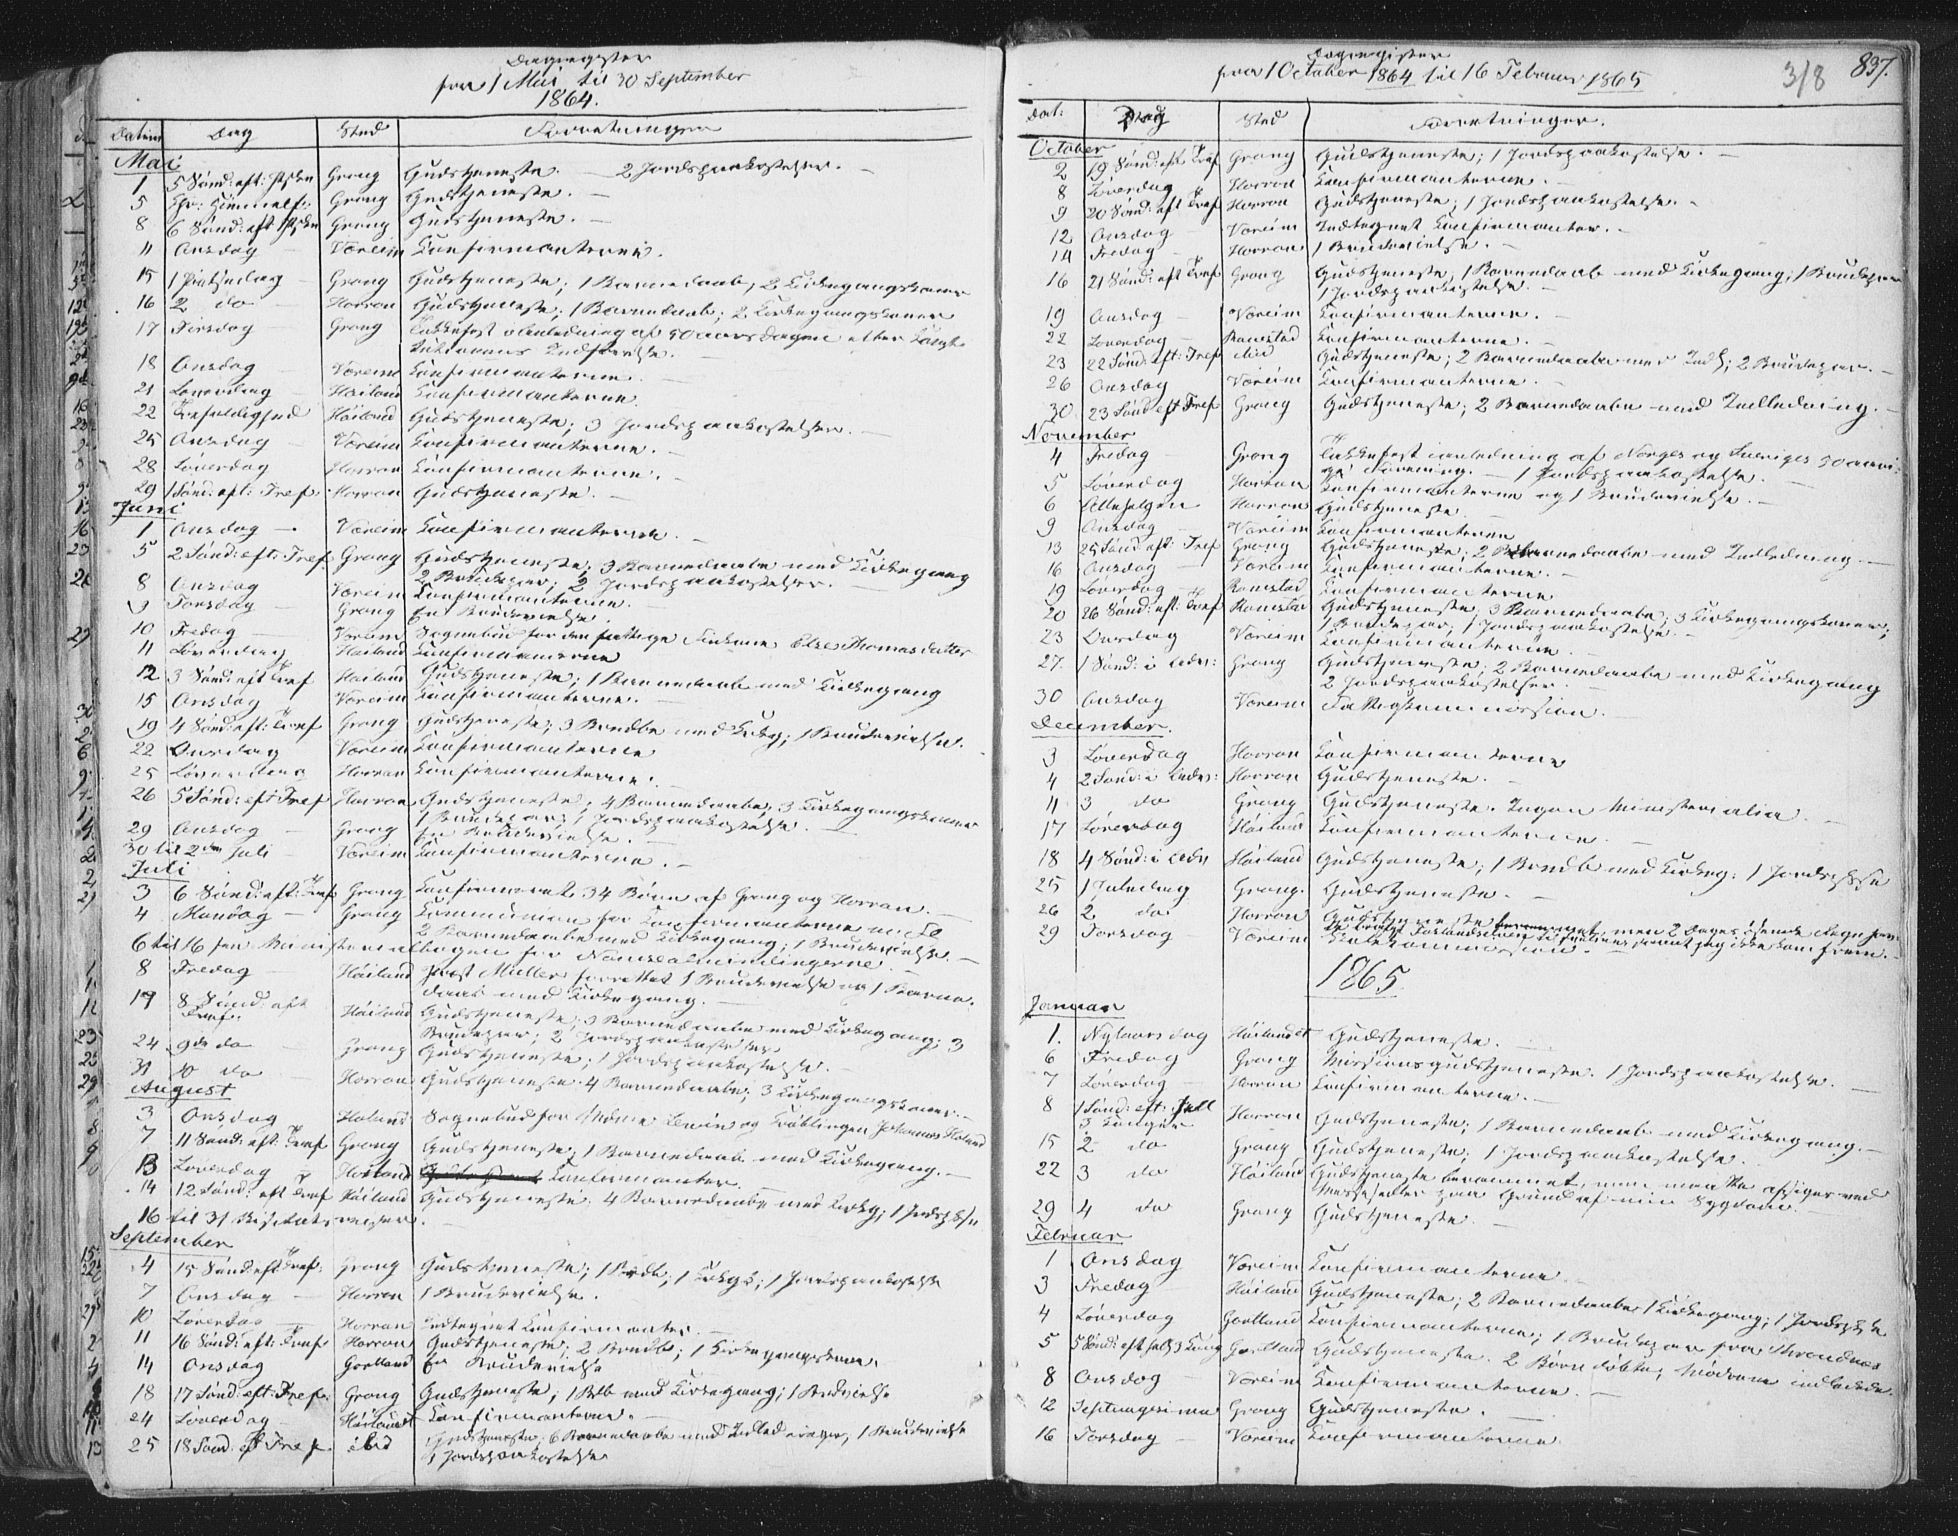 Dagregister
fra 1 Mai til 30 September
1864.
Datum Dag Sted Forretninger
Mai
1 5 Sønd: eft: Paaske Grong Gudstjeneste. — 2 Jordspaakastelser. —
5 Chr: Himmelf: Grong Gudstjeneste. —
8 6 Sønd: eft Paaske Grong Gudstjeneste. —
11 Onsdag Væreim Konfirmanterne.
15 1 Pintsedag — Grong Gudstjeneste; 1 Barnedaab, 2 Kirkegangskoner
16 2 do Horran Gudstjeneste; 1 Barnedaab; 2 Kirkegangskoner
17 Tirsdag — Grong Takkefest i Anledning af 50 aarsdagen efter
Indførelse. —
18 Onsdag Væreim Konfirmanterne. —
21 Løverdag Høiland Konfirmanterne
22 Trefoldighed Høiland Gudstjeneste; 3 Jordspaakastelser. —
25 Onsdag — Væreim Konfirmanterne. —
28 Løverdag Horran Konfirmanterne. —
29 1 Sønd: eft: Tref: Horran Gudstjeneste. —
Juni
1 Onsdag — Væreim Konfirmanterne. —
5 2 Sønd: eft: Tref Grong Gudstjeneste; 3 Barnedaabe med Kirkegang
2 Brudepar; 2 Jordspaakastelser.
8 Onsdag Væreim Konfirmanterne. —
9 Torsdag — Grong En Brudevielse.
10 Fredag — Væreim Sognebud for den fattige Else Thomasdatter
11 Løverdag Høiland Konfirmanterne
12 3 Sønd: eft Tref Høiland Gudstjeneste; 1 Barnedaab med Kirkegang
15 Onsdag Væreim Konfirmanterne. —
19 4 Sønd: eft: Tref Grong Gudstjeneste; 3 Barndbe med Kirkeg; 1 Brudevielse.
22 Onsdag Væreim Konfirmanterne
25 Løverdag Horran Konfirmanterne.
26 5 Sønd: eft Tref Horran Gudstjeneste; 4 Barnedaabe, 3 Kirkegangskoner
1 Brudepar; 1 Jordspaakastelse. —
29 Onsdag — Grong En Brudevielse. —
30 til 2den Juli — Væreim Konfirmanterne. —
Juli
3 6 Sønd: eft: Tref Grong Konfirmeret 34 Børn af Grong og Horran. —
4 Mandag — Grong Communion for Konfirmanterne
2 Barnedaabe med Kirkegang; 1 Brudevielse. —
6 til 16 Ministerialbogen for Namsdalmindingerne. —
8 Fredag — Høiland Prost Müller forrettet 1 Brudevielse og 1 Barne-
daab med Kirkegang. —
17 8 Sønd: eft
Tref: Høiland Gudstjeneste; 3 Barnedaabe med Kirkegang; 3
Brudepar; 2 Jordspaakastelser
24 9de do — Grong Gudstjeneste; 1 Jordspaakastelse. —
31 10 do — Horran Gudstjeneste. 4 Barnedaabe; 3 Kirkegangskoner. —
August
3 Onsdag Høiland Sognebud for og Kræblingen Johannes Høiland
7 11 Sønd: eft: Tref Grong Gudstjeneste; 1 Barnedaab med Kirkegang. —
13 Løverdag — Høiland Konfirmanter. —
14 12 Sønd: eft Tref Høiland Gudstjeneste. 4 Barnedaabe med Kirkg; 1 Jordspkse
16 til 31 Visitatsreiser. —
September
4 15 Sønd: eft Tref: Grong Gudstjeneste; 1 Brdb; 1 Kirkgk; 1 Jordspaakastelse
7 Onsdag — Horran 1 Brudevielse. —
10 Løverdag — Horran Indtegnet Konfirmanter. —
11 16 Sønd: eft: Tref Horran Gudstjeneste; 2 Barndb; 1 Kirkegangskone.
14 Onsdag Gjertland En Brudevielse
18 17 Sønd: eft: Tref: Grong Gudstjeneste; 1 Bdb med Kirkegang; 1 Brdvielse
24 Løverdag Høilandet Konfirmanterne. —
25 18 Sønd: eft Tref. ibid Gudstjeneste; 6 Barnedaabe med Indledninger, 1 Brudevielse
1 Jordspaakastelse
Dagregister
fra 1 October 1864 til 16 Februar 1865
318 837.
Dat: Dag Sted Forretninger.
October
2 19 Sønd: eft Tref Grong Gudstjeneste; 1 Jordspaakastelse. —
8 Løverdag Horran Konfirmanterne. —
9 20 Sønd: eft Tref Horran Gudstjeneste; 1 Jordspaakastelse. —
12 Onsdag — Væreim Indtegnet Konfirmanter. —
14 Fredag — Horran 1 Brudevielse. —
16 21 Sønd: eft Tref Grong Gudstjeneste, 1 Barnedaab med Kirkegang; 1 Brudepar
1 Jordspaakastelse. —
19 Onsdag — Væreim Konfirmanterne. —
22 Løverdag — Ranestad Konfirmanterne. —
23 22 Sønd: eft: Tref ibid Gudstjeneste; 2 Barnedaabe med Indl; 2 Brudepar. —
26 Onsdag Væreim Konfirmanterne. —
30 23 Sønd eft Tref Grong Gudstjeneste; 2 Barnedaabe med Indledning. —
November
4 Fredag — Grong Takkefest i anledning af Norges og Sveriges 50 aari-
ge Forening. — 1 Jordspaakastelse. —
5 Løverdag Horran Konfirmanterne og 1 Brudevielse. —
6 Allehelgen Horran Gudstjeneste. —
9 Onsdag — Væreim Konfirmanterne
13 25 Sønd: eft: Tref Grong Gudstjeneste; 2 Barnedaabe med Indledning. —
16 Onsdag Væreim Konfirmanterne. —
19 Løverdag Ranestad Konfirmanterne
20 26 Sønd: eft: Tref Ranestad Gudstjeneste. 3 Barnedaabe; 3 Kirkegangskoner;
1 Brudepar; 1 Jordspaakastelse. —
23 Onsdag Væreim Konfirmanterne. —
27. 1 Sønd: i Adv: Grong Gudstjeneste; 2 Barnedaabe med Kirkegang
2 Jordspaakastelser. —
30 Onsdag Væreim Fattigkommission. —
December.
3 Løverdag Horran Konfirmanterne
4 2 Sønd: i Adv: Horran Gudstjeneste. —
11 3 do Grong Gudstjeneste. Ingen Ministerialia. —
17 Løverdag Høiland Konfirmanterne. —
18 4 Sønd: i Adv Høiland Gudstjeneste; 1 Barndb med Kirkeg: 1 Jordspkse
25 1 Juledag Grong. Gudstjeneste. —
26 2 do Horran Gudstjeneste berammet, men 2 Dages
jeg ikke kom frem. —
29 Torsdag Væreim Skolekommission. —
1865
Januar
1. Nytaarsdag Høilandet Gudstjeneste. —
6 Fredag Grong Missionsgudstjeneste. 1 Jordspaakastelse. —
7 Løverdag — Horran Konfirmanterne. —
8 1 Sønd: eft: Hell
3 Konger Horran Gudstjeneste; 1 Barnedaab med Kirkegang. —
15 2 do Grong Gudstjeneste; 1 Jordspaakastelse. —
22 3 do Høiland Gudstjeneste berammet, men maatte afsiges ved
Messefald paa Grund af min Sygdom. —
29 4 do Grong Gudstjeneste. —
Februar
1 Onsdag Væreim Konfirmanterne. —
3 Fredag Høiland Gudstjeneste; 2 Barnedaabe, 1 Kirkegang; 1 Jordspkse
4 Løverdag Gjertland Konfirmanterne; 1 Brudepar fra
5 5 Sønd: eft hell 3 Kong Gjertland Gudstjeneste. 2 Børn døbte, Mødrene indledede.
8 Onsdag — Væreim Konfirmanterne. —
12 Septuagesima Grong Gudstjeneste. —
16 Torsdag — Væreim Konfirmanterne.